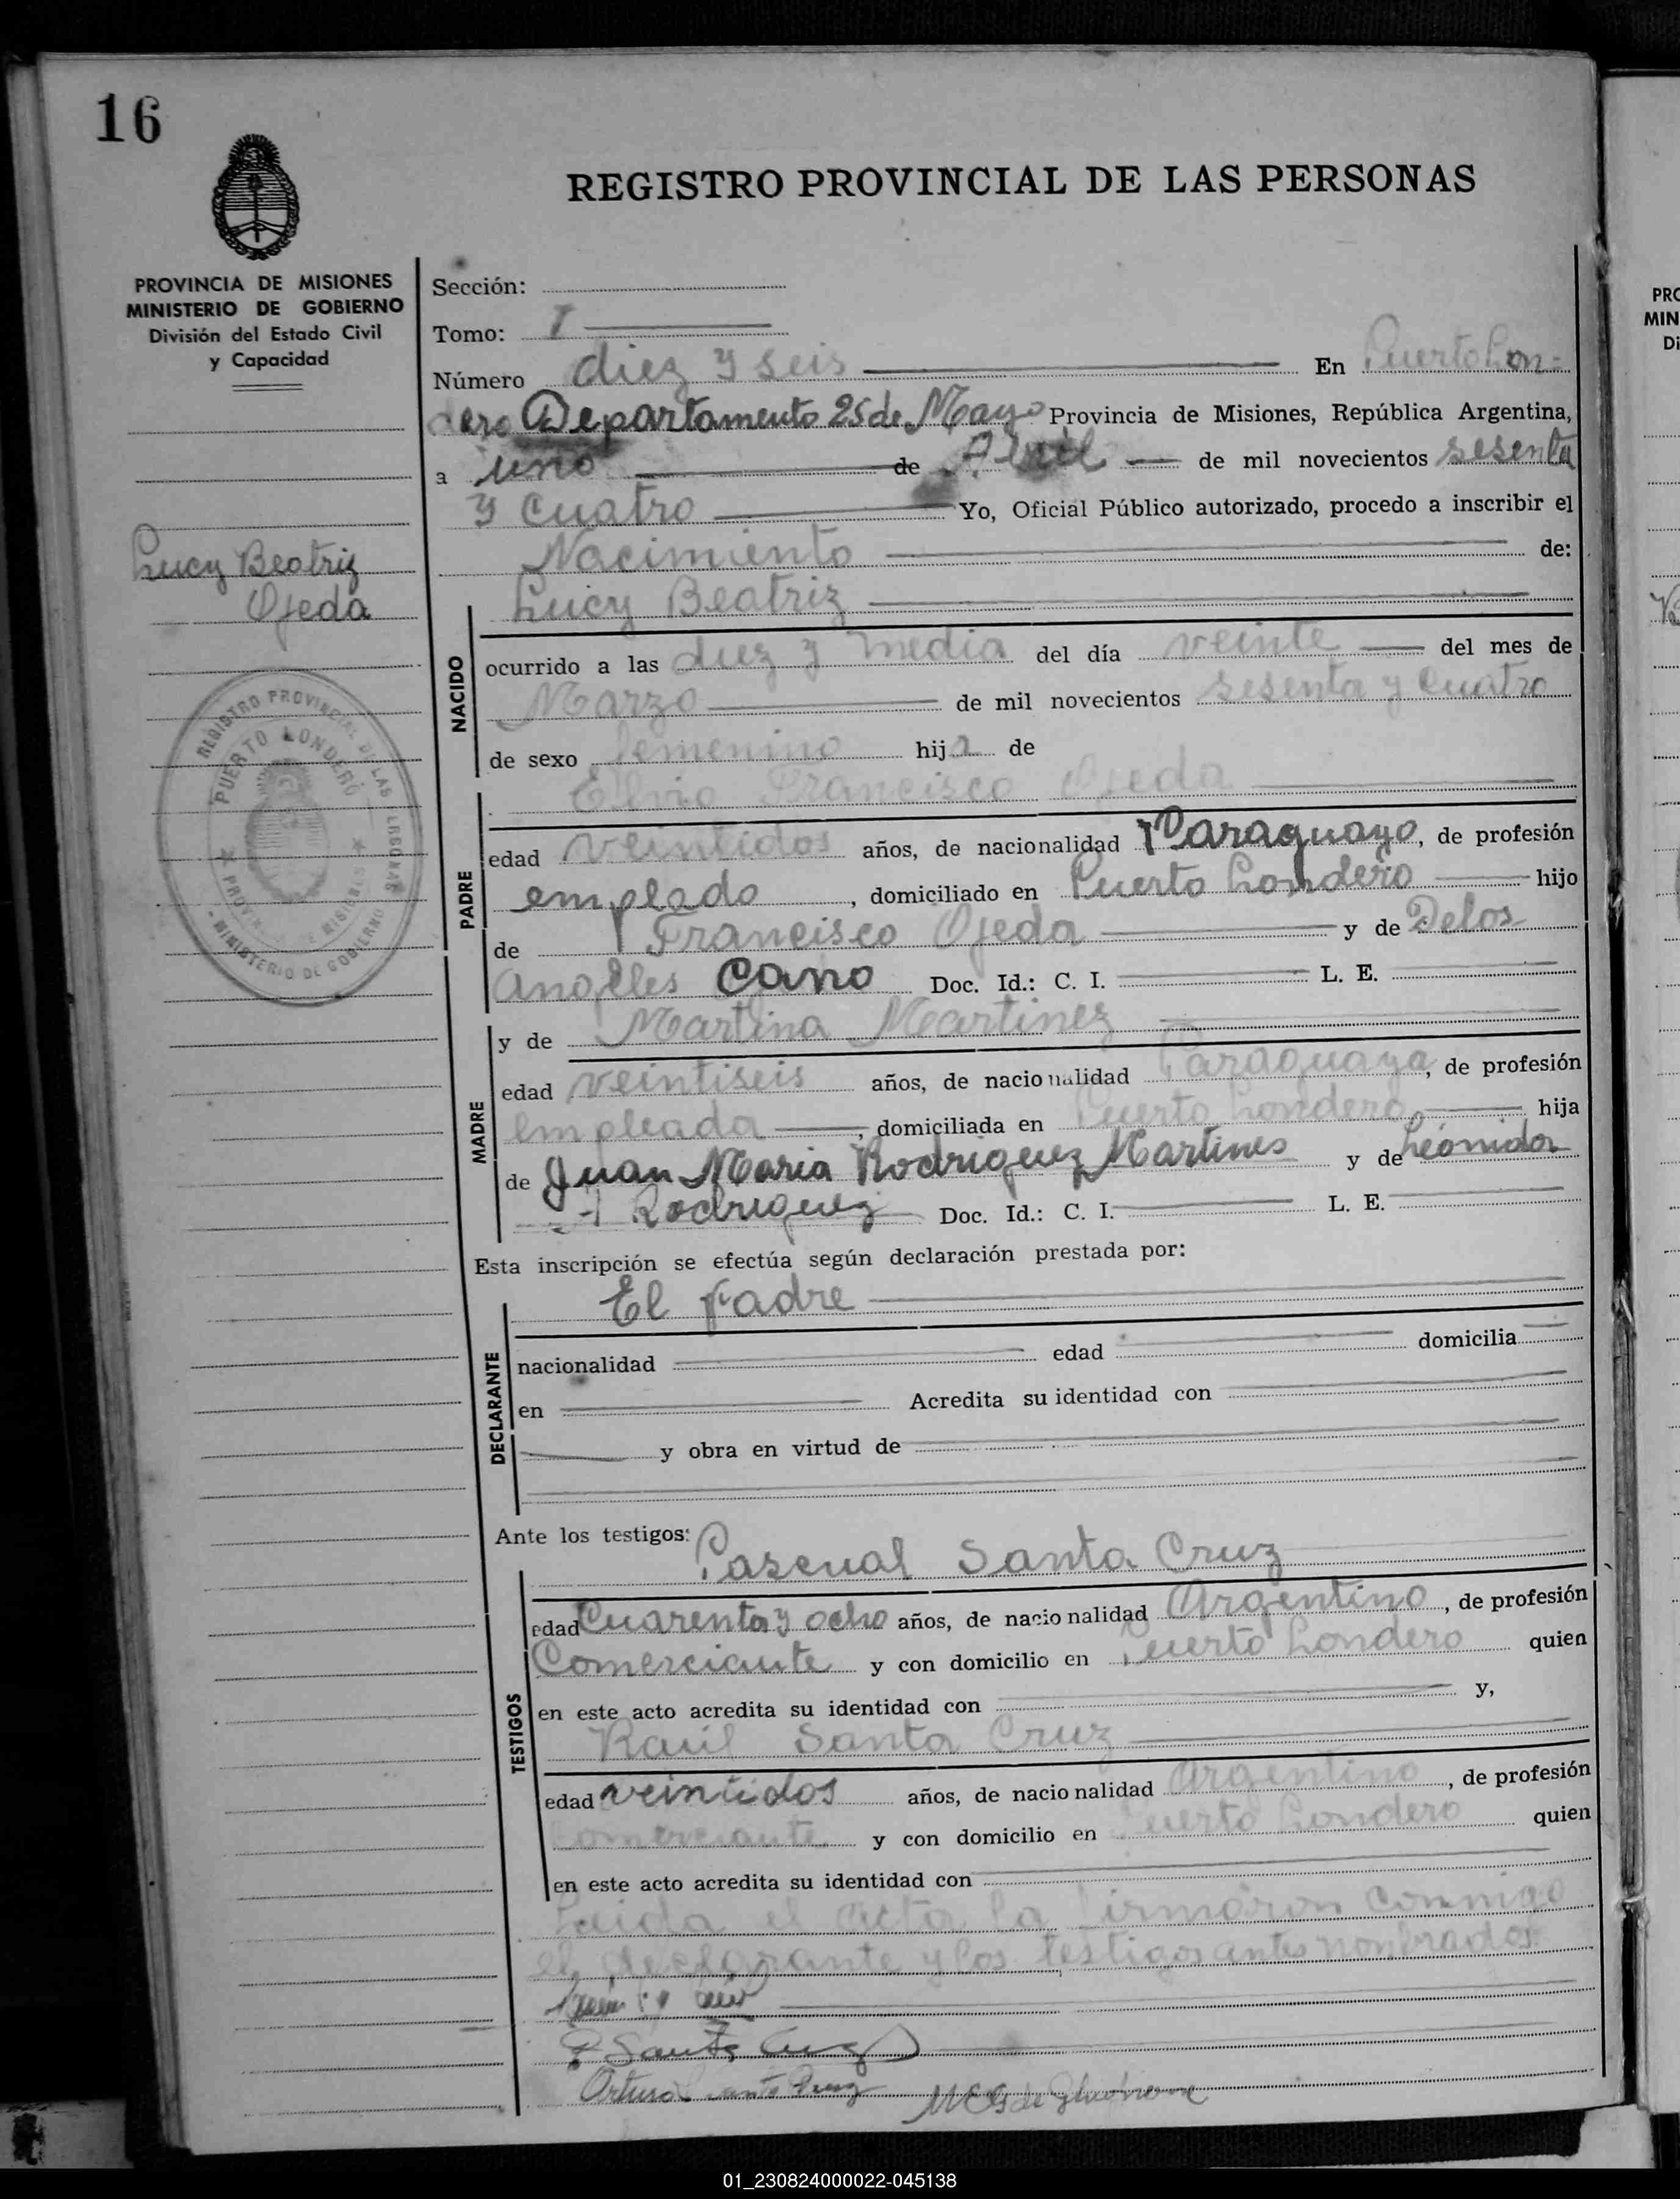 16
REGISTRO PROVINCIAL DE LAS PERSONAS
PROVINCIA DE MISIONES
MINISTERIO DE GOBIERNO
División del Estado Civil
y Capacidad
Lucy Beatriz
Ojeda
REGISTRO PROVINCIAL DE LAS PERSONAS
PUERTO LONDERO
MINISTERIO DE GOBIERNO
Sección:
Tomo: I
Número diez y seis En Puerto Lon-
dero Departamento 25 de Mayo Provincia de Misiones, República Argentina,
a uno de Abril de mil novecientos sesenta
y cuatro Yo, Oficial Público autorizado, procedo a inscribir el
Nacimiento de:
Lucy Beatriz
NACIDO
ocurrido a las diez y media del día veinte del mes de
Marzo de mil novecientos sesenta y cuatro
de sexo femenino hija de
Elvio Francisco Ojeda
PADRE
edad veintidos años, de nacionalidad Paraguayo, de profesión
empleado, domiciliado en Puerto Londero hijo
de Francisco Ojeda y de Delos
Angeles Cano Doc. Id.: C. I. L. E.
y de Martina Martinez
MADRE
edad veintiseis años, de nacionalidad Paraguaya, de profesión
empleada, domiciliada en Puerto Londero, hija
de Juan Maria Rodriguez Martines y de Leonidor
Rodriguez Doc. Id.: C. I. L. E.
Esta inscripción se efectúa según declaración prestada por:
El Padre
DECLARANTE
nacionalidad edad domicilia
en Acredita su identidad con
y obra en virtud de
Ante los testigos:
Pascual Santa Cruz
TESTIGOS
edad Cuarenta y ocho años, de nacionalidad Argentino, de profesión
Comerciante y con domicilio en Puerto Londero quien
en este acto acredita su identidad con y,
Raúl Santa Cruz
edad veintidos años, de nacionalidad Argentino, de profesión
Comerciante y con domicilio en Puerto Londero quien
en este acto acredita su identidad con
Leida el acta la firmaron conmigo
el declarante y los testigos antes nombrados.
P Santa Cruz
Arturo Santa Cruz
PRO
MIN
Di
01_230824000022-045138